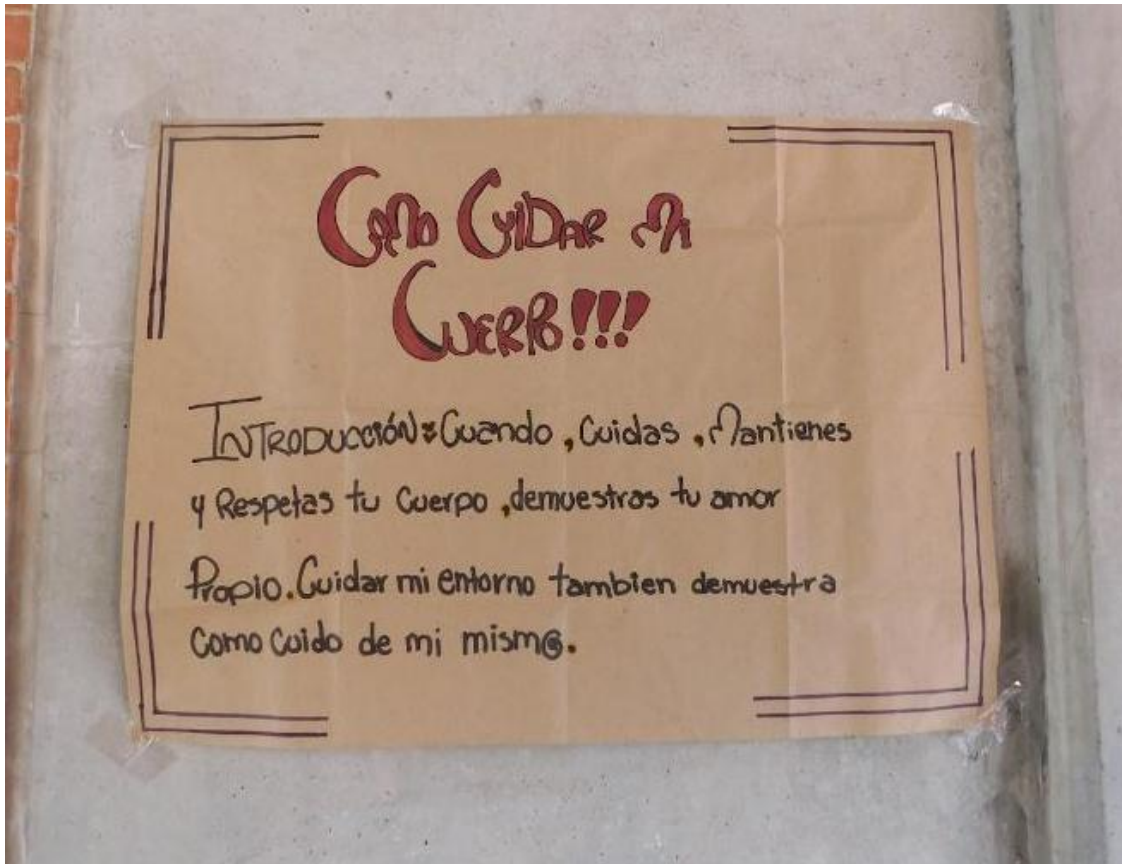 Como Cuidar mi
Cuerpo!!!
Introducción: Cuando, Cuidas, Mantienes
y Respetas tu Cuerpo, demuestras tu amor
Propio. Cuidar mi entorno tambien demuestra
Como cuido de mi mism@.